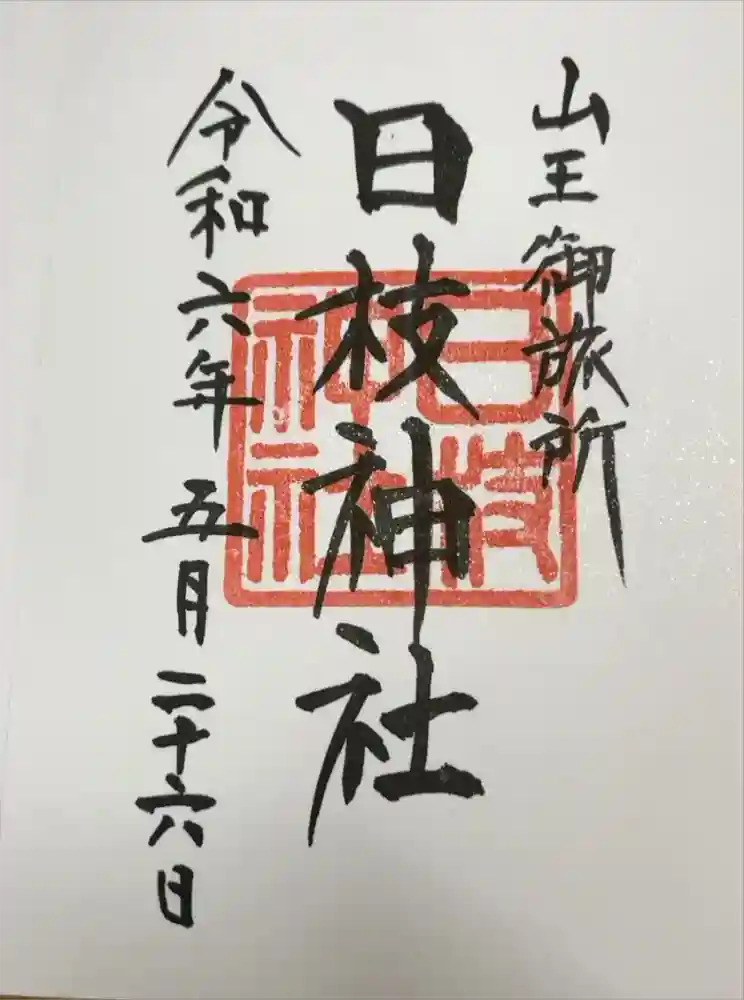 山王御旅所
日枝神社
日枝神社
令和六年五月二十六日